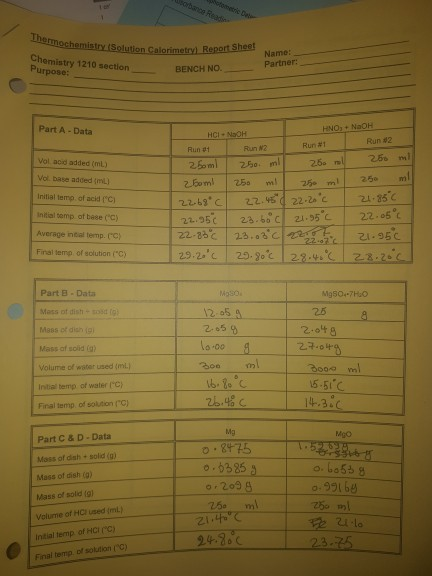 Thermochemistry (Solution Calorimetry) Report Sheet
Name:
Chemistry 1210 section
BENCH NO.
Partner:
Purpose:
Part A - Data
HCl + NaOH
HNO3 + NaOH
Run #1 Run #2 Run #1 Run #2
Vol. acid added (mL) 250ml 250. ml 250 ml 250 ml
Vol. base added (mL) 250ml 250 ml 250 ml 250 ml
Initial temp. of acid (°C) 22.68°C 22.45°C 22.20°C 21.85°C
Initial temp. of base (°C) 22.95°C 23.60°C 21.95°C 22.05°C
Average initial temp. (°C) 22.83°C 23.03°C 22.02°C 21.95°C
Final temp. of solution (°C) 29.20°C 29.80°C 28.40°C 28.20°C
Part B - Data MgSO4 MgSO4•7H2O
Mass of dish + solid (g) 12.05 g 25 g
Mass of dish (g) 2.05 g 2.04 g
Mass of solid (g) 10.00 g 27.04g
Volume of water used (mL) 300 ml 3000 ml
Initial temp. of water (°C) 16.80°C 15.51°C
Final temp. of solution (°C) 26.40°C 14.30C
Part C & D - Data Mg MgO
Mass of dish + solid (g) 0.8475
Mass of dish (g) 0.6385 g 0.6053 g
Mass of solid (g) 0.209 g 0.9916g
Volume of HCl used (mL) 250 ml 250 ml
Initial temp. of HCl (°C) 21.40°C 21.10
Final temp. of solution (°C) 24.80°C 23.75